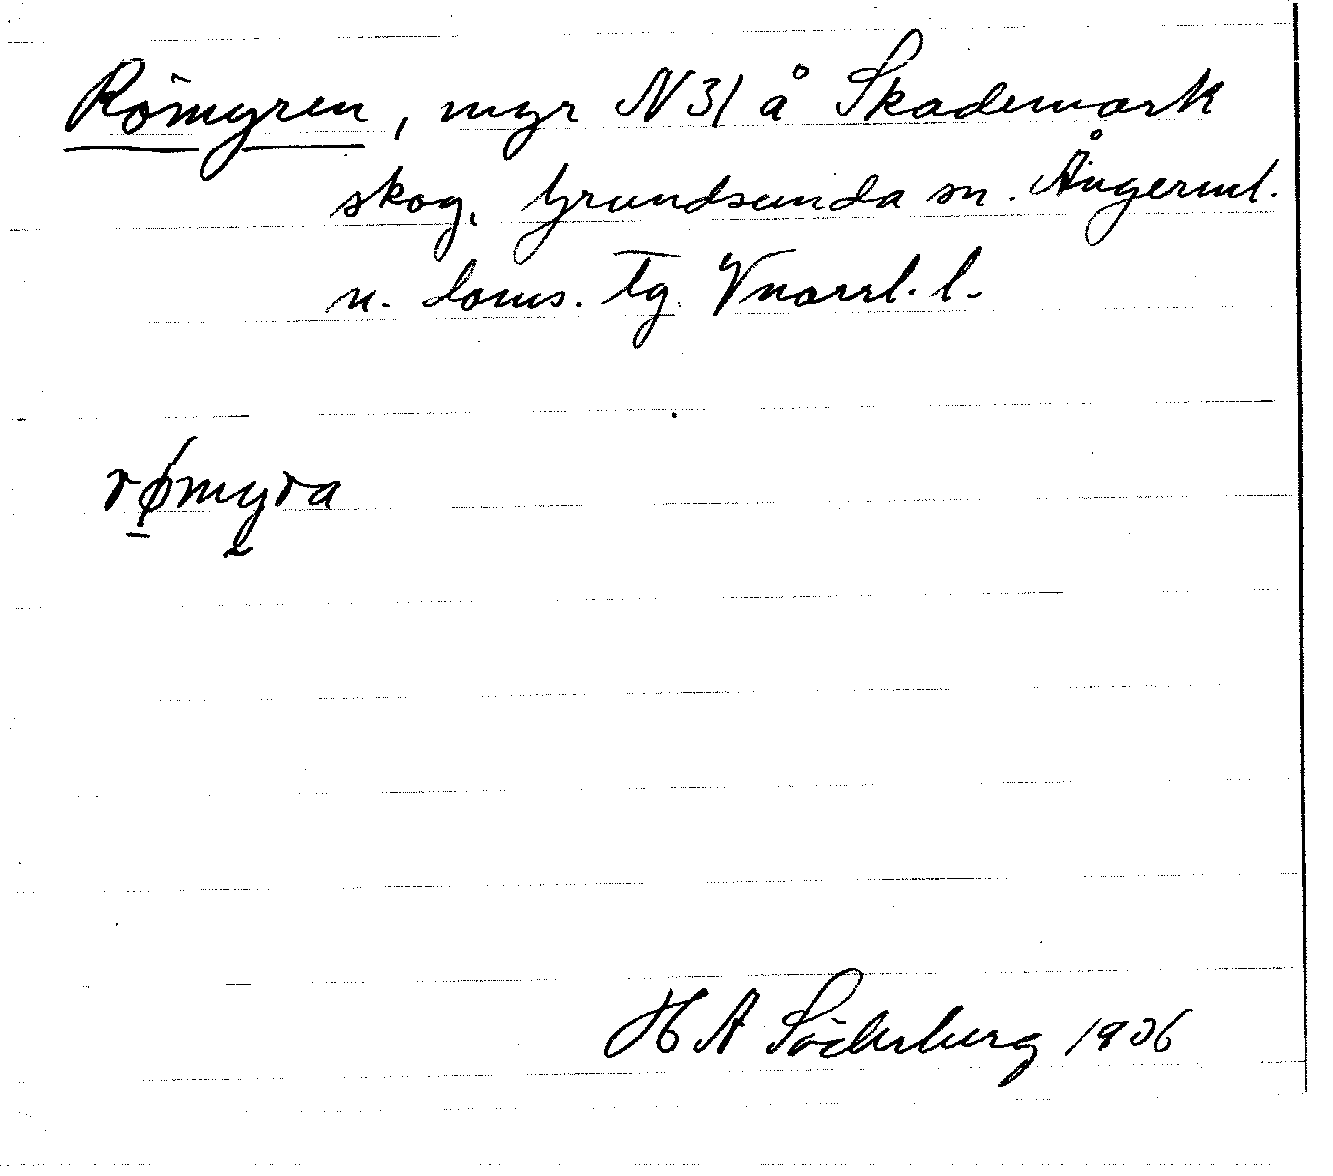 Römyren, myr N 31 å Skademark
skog, Grundsunda sn. Ångerml.
n. doms. tg. Vnorrl. l.
rømyra
H A Söderberg 1906